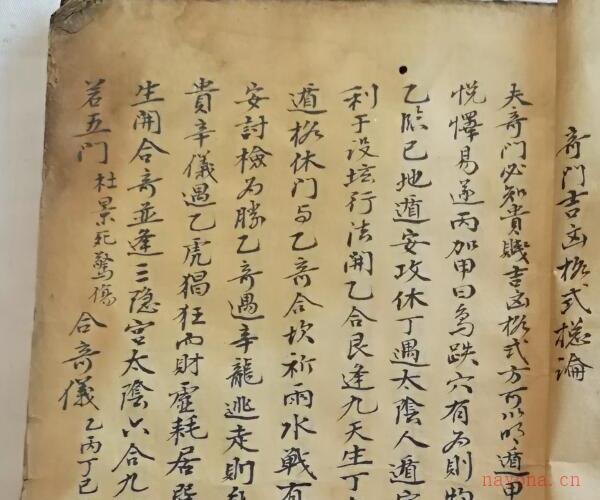 奇門吉凶格式總論
夫奇門必知貴賤吉凶格式方可以明遁甲
悅懌易遂丙加甲曰鳥跌穴有為則
乙臨己地遁安攻休丁遇太陰人遁
利于設坛行法開乙合艮逢九天生丁
遁格休门与乙奇合坎祈雨水戰有
安討檢為勝乙奇遇辛龍逃走則
貴辛儀遇乙虎猖狂而財虛耗居
生開合奇並逢三隐宫太陰六合九
若五门 杜景死驚傷 合奇儀 乙丙丁己
nayona.cn